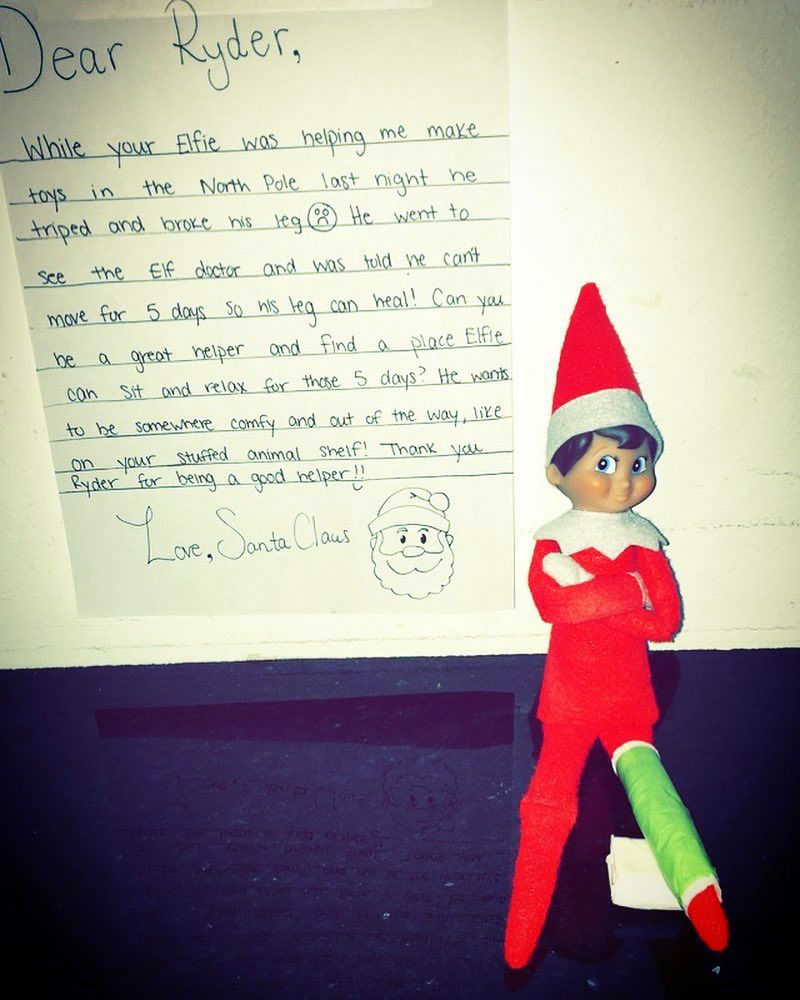 Dear Ryder,
While your Elfie was helping me make
toys in the North Pole last night he
triped and broke his leg He went to
see the Elf doctor and was told he can't
move for 5 days so his leg can heal! Can you
be a great helper and find a place Elfie
can sit and relax for those 5 days? He wants
to be somewhere comfy and out of the way, like
on your stuffed animal shelf! Thank you
Ryder for being a good helper!!
Love, Santa Claus